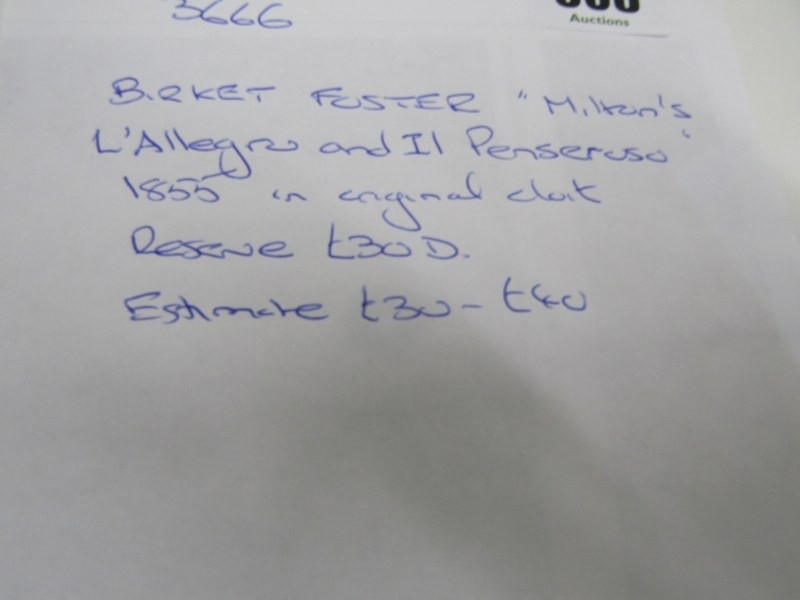 3666
Auctions
BIRKET FOSTER "Milton's
L'Allegro and Il Penseroso"
1855 in original cloit
Reserve £30 D.
Estimate £30 - £40